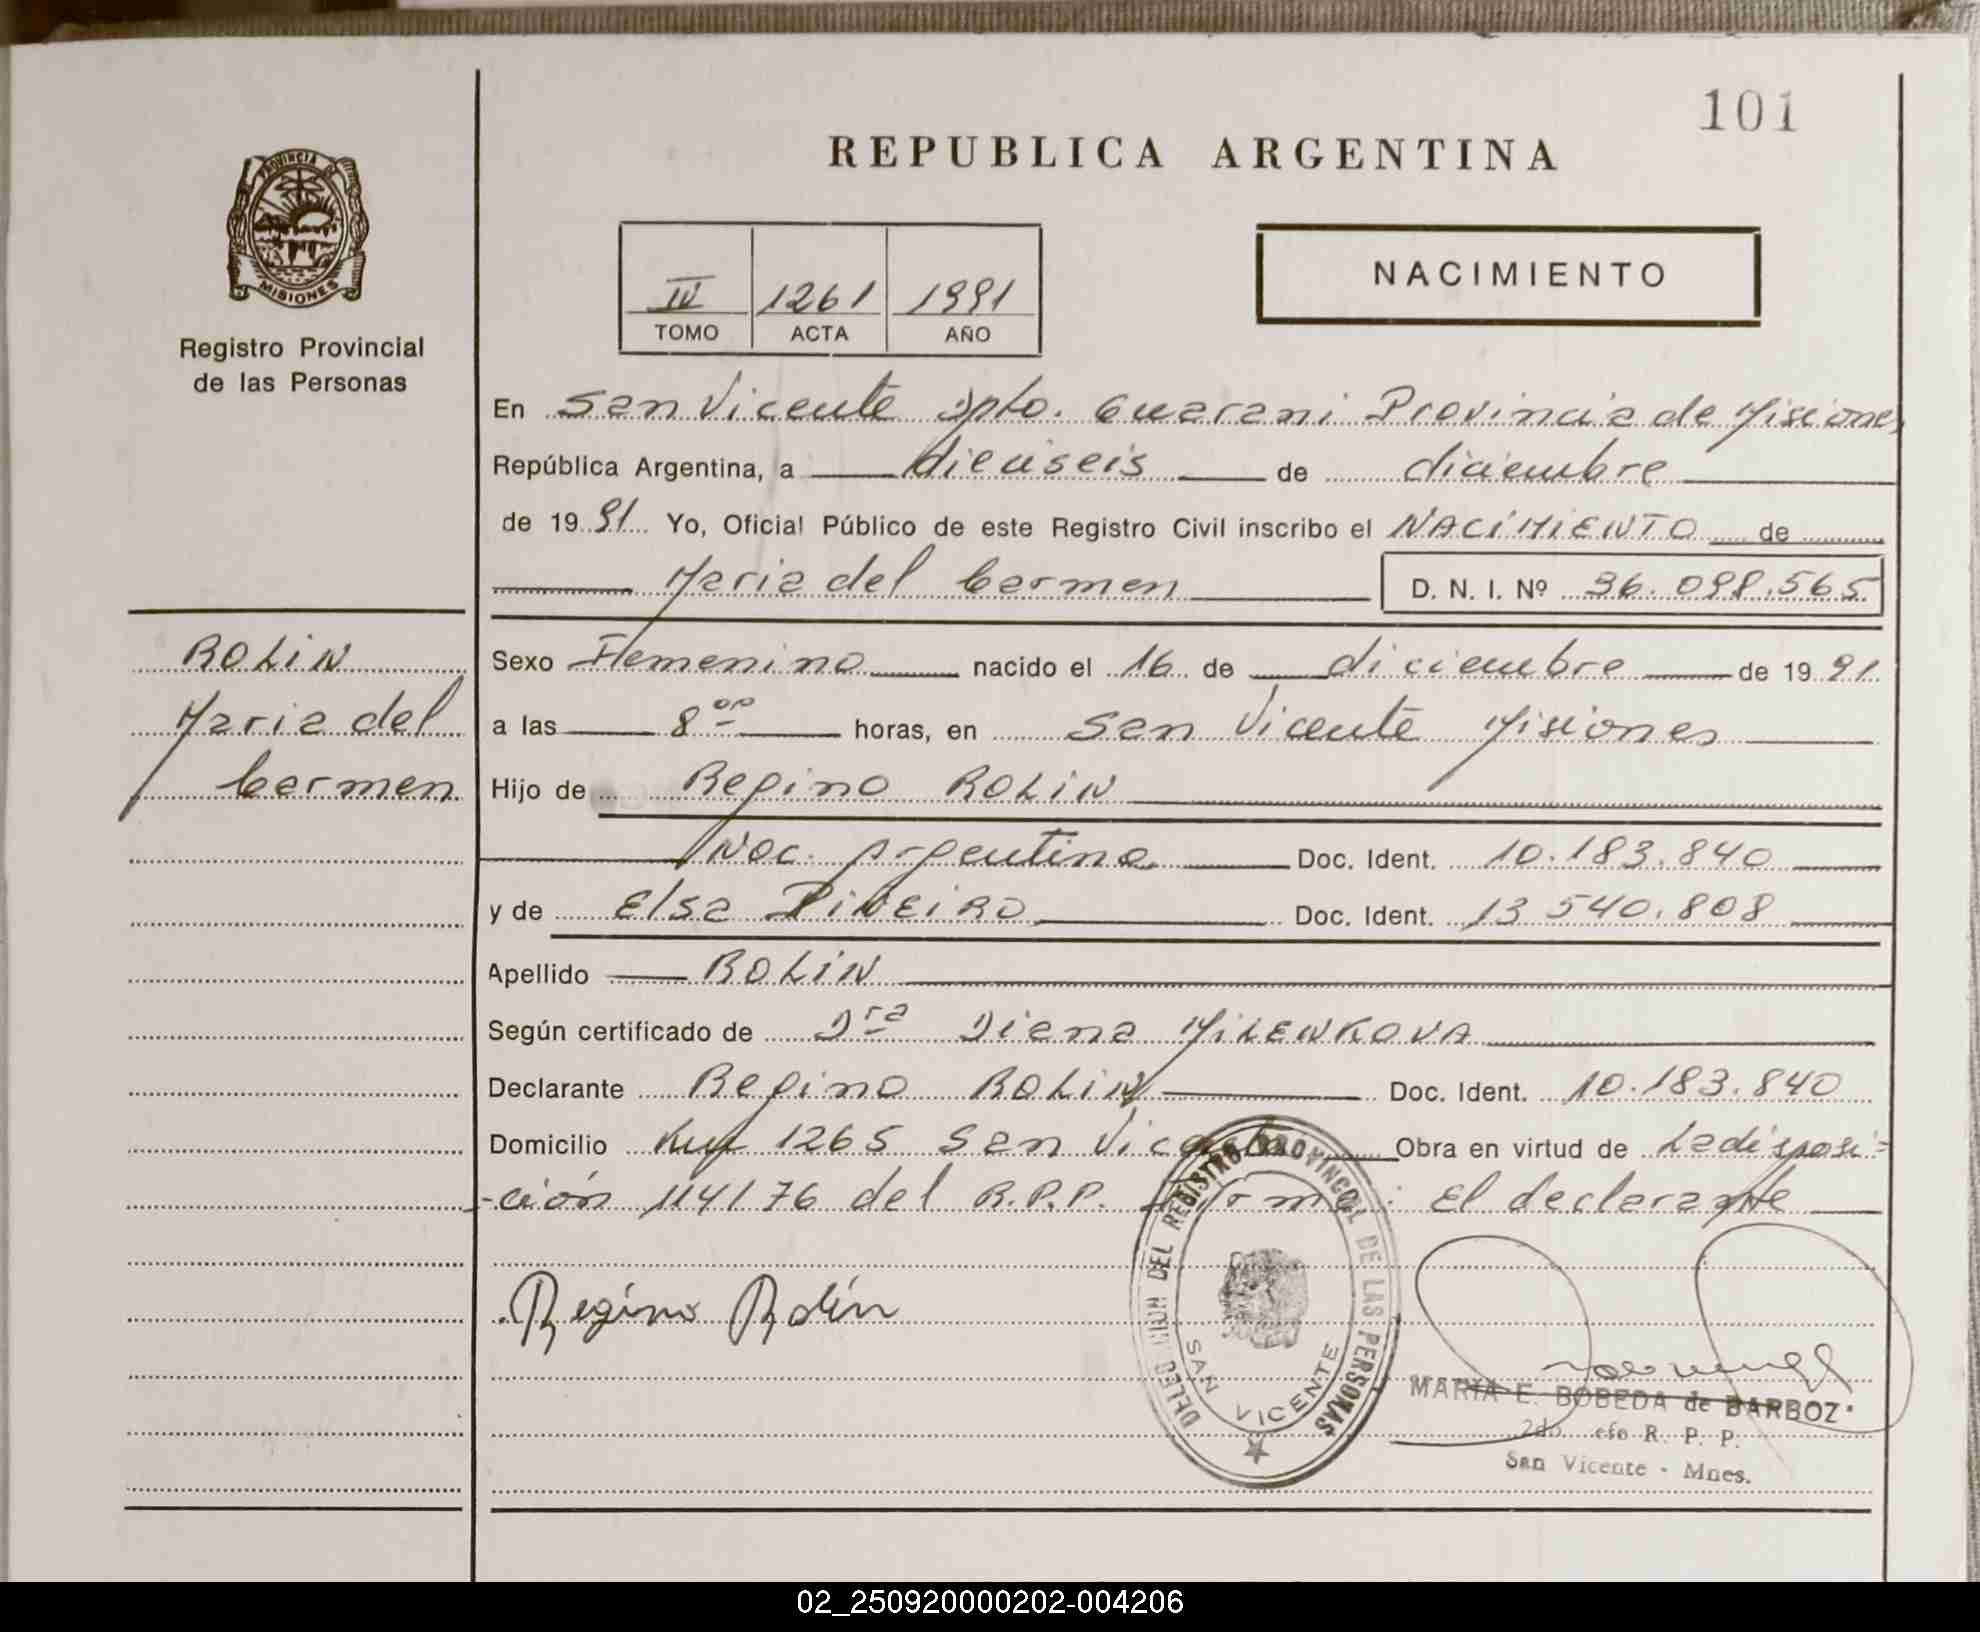 101
REPUBLICA ARGENTINA
PROVINCIA DE
MISIONES
Registro Provincial
de las Personas
IV 1261 1991
TOMO ACTA AÑO
NACIMIENTO
En San Vicente Dpto. Guarani Provincia de Misiones
República Argentina, a dieciseis de diciembre
de 1991 Yo, Oficial Público de este Registro Civil inscribo el NACIMIENTO de
Maria del Carmen D. N. I. Nº 36.098.565
ROLIN
Maria del
Carmen
Sexo Femenino nacido el 16 de diciembre de 1991
a las 8 oo horas, en San Vicente Misiones
Hijo de Regino ROLIN
Nac. Argentina Doc. Ident. 10.183.840
y de Elsa PIÑEIRO Doc. Ident. 13 540.808
Apellido ROLIN
Según certificado de Dra Diana MILENKOVA
Declarante Regino ROLIN Doc. Ident. 10.183.840
Domicilio Km 1265 San Vicente Obra en virtud de La disposi=
-ción 114/76 del R.P.P. Firma: El declarante
Regino Rolin
DELEGACION DEL REGISTRO PROVINCIAL DE LAS PERSONAS
SAN VICENTE
MARIA E. BOBEDA de BARBOZ
2do. efe R. P. P.
San Vicente - Mnes.
02_250920000202-004206